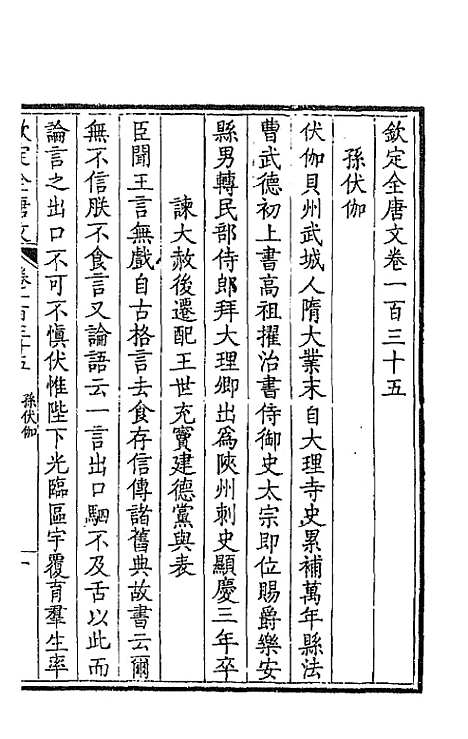 欽定全唐文卷一百三十五
孫伏伽
伏伽貝州武城人隋大業末自大理寺史累補萬年縣法
曹武德初上書高祖擢治書侍御史太宗即位賜爵樂安
縣男轉民部侍郎拜大理卿出爲陝州刺史顯慶三年卒
諫大赦後遷配王世充竇建德黨與表
臣聞王言無戲自古格言去食存信傳諸舊典故書云爾
無不信朕不食言又論語云一言出口駟不及舌以此而
論言之出口不可不愼伏惟陛下光臨區宇覆育羣生率
欽定全唐文 卷一百三十五 孫伏伽 一